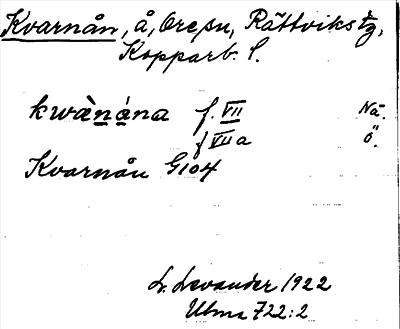 Kvarnån, å, Ore sn, Rättviks tg,
Kopparb. l.
kwànána f. VII Nä.
f VII a Ö.
Kvarnån G104
L. Levander 1922
Ulma 722:2